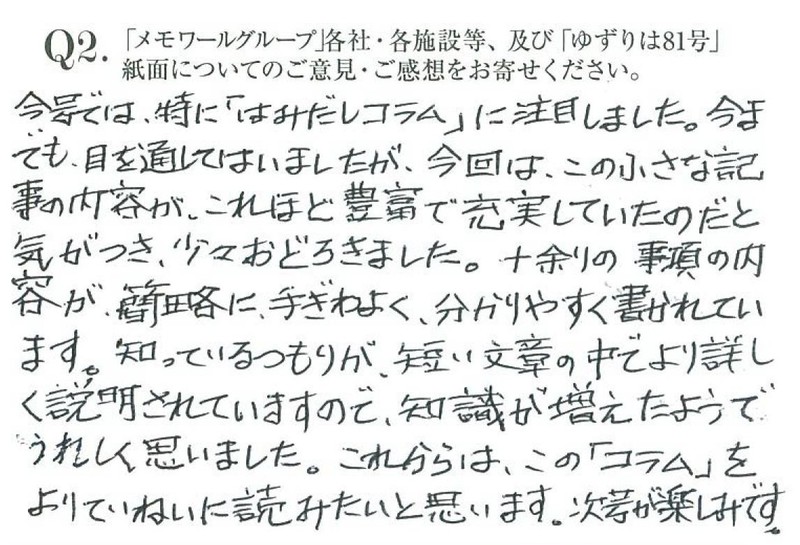 Q2.「メモワールグループ」各社・各施設等、及び「ゆずりは81号」
紙面についてのご意見・ご感想をお寄せください。
今号では、特に「はみだしコラム」に注目しました。今ま
でも、目を通してはいましたが、今回は、この小さな記
事の内容が、これほど豊富で充実していたのだと
気がつき、少々おどろきました。十余りの事項の内
容が、簡略に、手ぎわよく、分かりやすく書かれてい
ます。知っているつもりが、短い文章の中でより詳し
く説明されていますので、知識が増えたようで
うれしく思いました。これからは、この「コラム」を
よりていねいに読みたいと思います。次号が楽しみです。